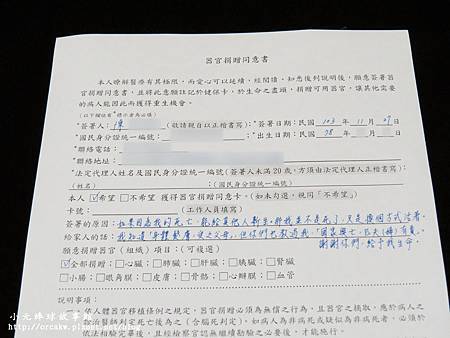 器官捐贈同意書
本人瞭解醫療有其極限,而愛心可以延續,經閱讀、知悉後列說明後,願意簽署器
官捐贈同意書,並將此意願註記於健保卡,於生命之盡頭,捐贈可用器官,讓其他需要
的病人能因此而獲得重生機會。
(以下欄位有*標示者為必填)
*簽署人:陳 (敬請親自以正楷書寫) *簽署日期:民國 103 年 11 月 07 日
*國民身分證統一編號: *出生日期:民國 78 年 月 日
*聯絡電話:
*聯絡地址:
*法定代理人姓名及國民身分證統一編號:(簽署人未滿20歲,方須由法定代理人正楷書寫)
(姓名) (國民身分證統一編號)
本人 ☑希望 □不希望 獲得器官捐贈同意卡。(如未勾選,視同「不希望」)
卡號: (工作人員填寫)
簽署的原因:如果因為我的死亡,能給其他人新生,那我並不是死了,只是換個方式活著。
給家人的話:我知道「身體髮膚,受之父母」,但你們也教過我「國家興亡,匹夫(婦)有責」。
謝謝你們,給予我生命。
願意捐贈器官(組織)項目:(可複選)
☑全部捐贈;□心臟;□肺臟;□肝臟;□胰臟;□腎臟
□小腸;□眼角膜;□皮膚;□骨骼;□心瓣膜;□血管
說明事項:
人體器官移植條例之規定,器官捐贈必須為無償之行為,且器官之摘取,應於病人之
診治醫師判定死亡後為之(含腦死判定)。如病人為非病死或疑似非病死者,必須於
依法相驗完畢後,且經檢察官認無繼續勘驗之必要者,才能施行。
小元棒球故事
http://orcakw.pixnet.net/blog